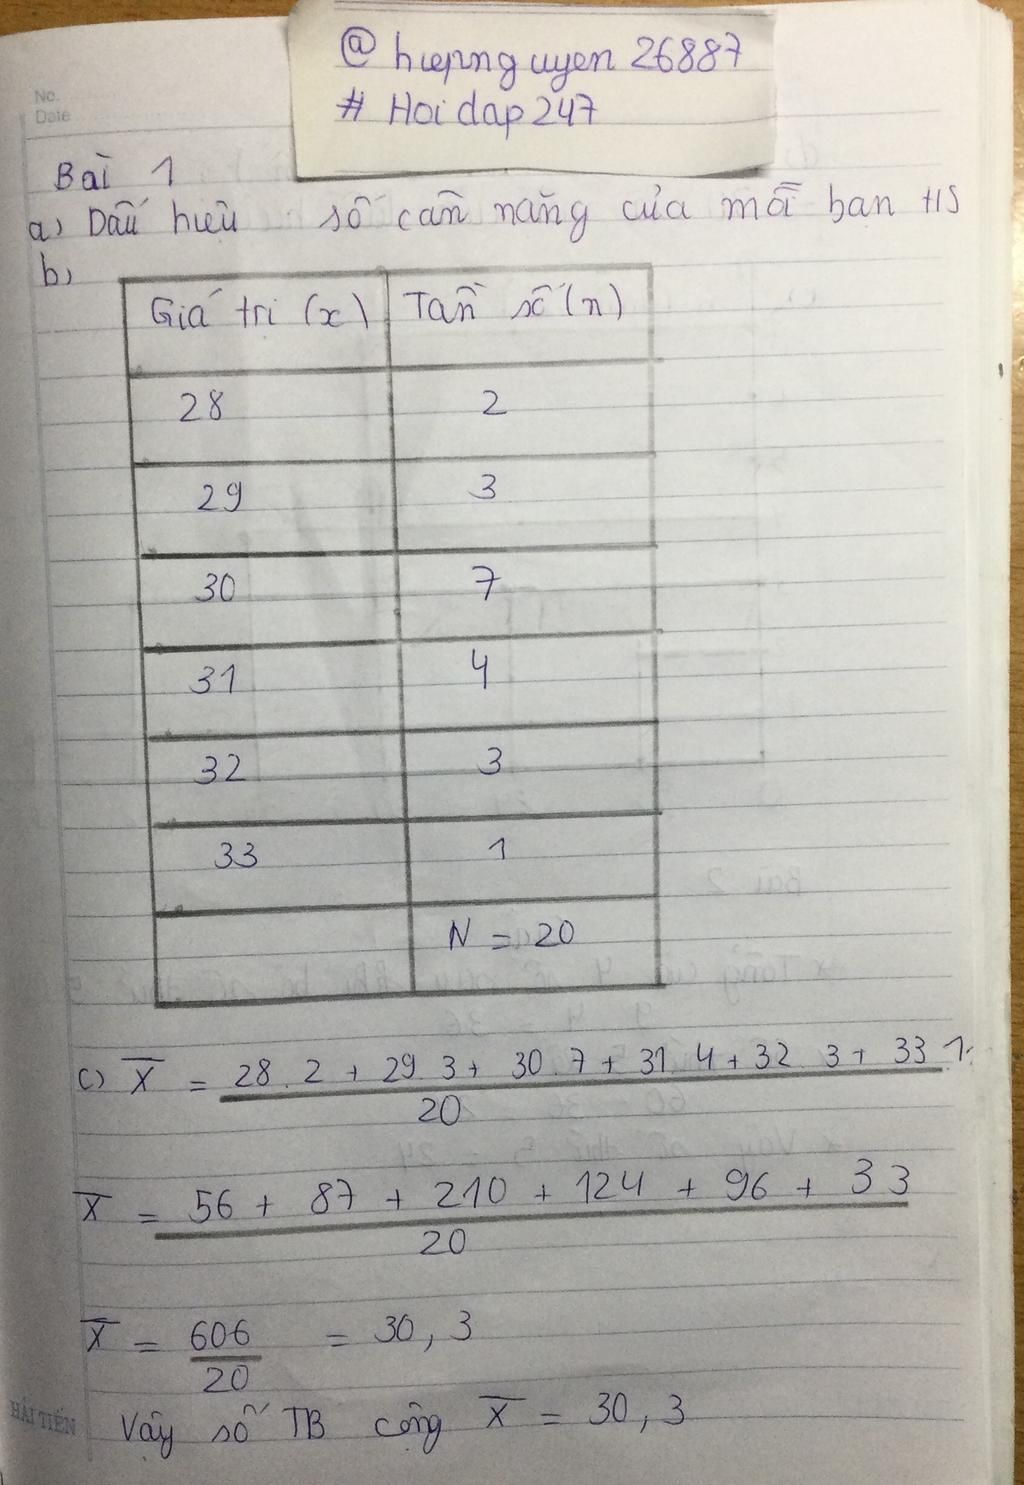 @ hiepnguyen 26887
# Hoi dap 247
No.
Date
Bài 1
a) Dấu hiệu số cần nặng của mỗi bạn HS
b)
Giá trị (x) Tần số (n)
28 2
29 3
30 7
31 4
32 3
33 1
N = 20
c) X̅ = 28 . 2 + 29 . 3 + 30 . 7 + 31 . 4 + 32 . 3 + 33 . 1
20
X̅ = 56 + 87 + 210 + 124 + 96 + 33
20
X̅ = 606 = 30,3
20
Vậy số TB cộng X̅ = 30,3
HẢI TIẾN